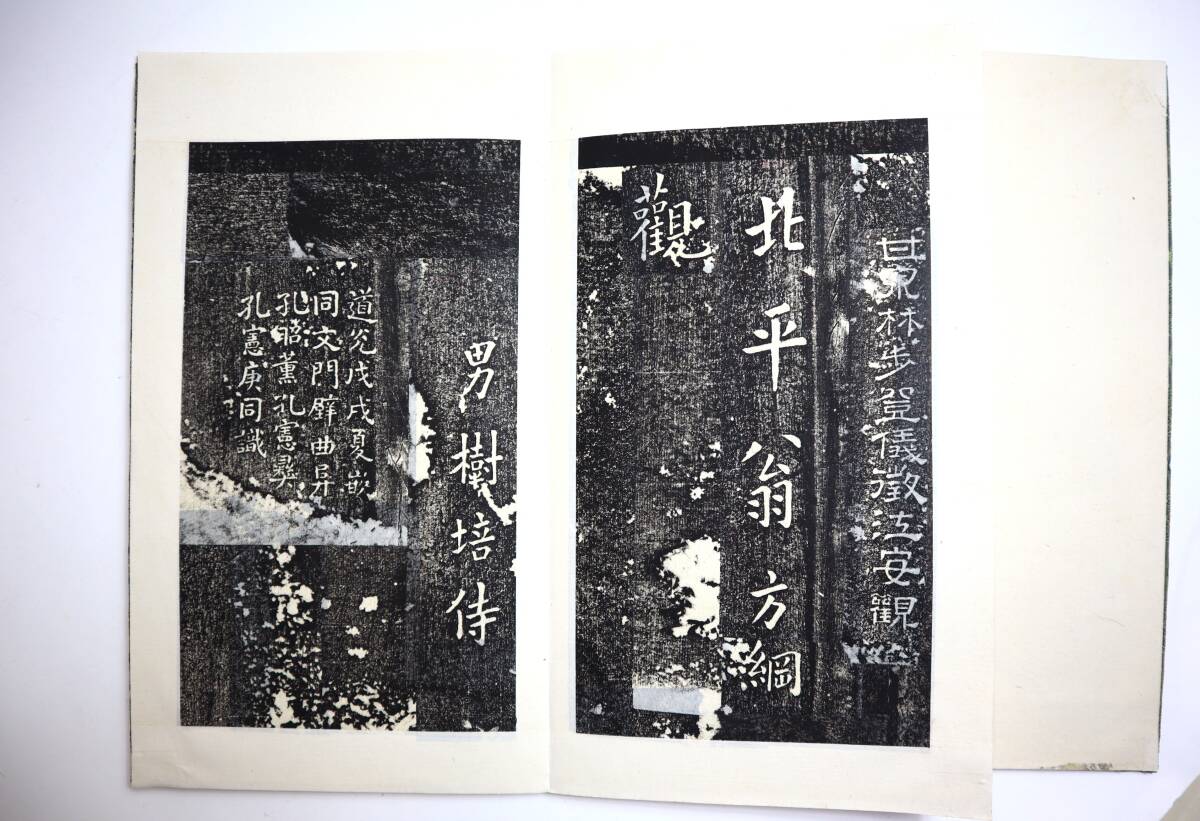 甘泉林步登儀徵江安觀
北平翁方綱
觀
男樹培侍
道光戊戌夏嵌
同文門壁曲阜
孔昭薰孔憲彝
孔憲庚同識